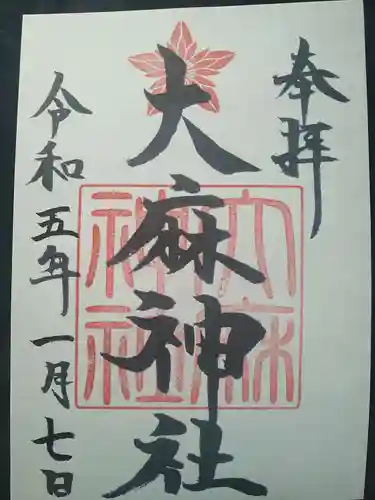 奉拝
大麻神社
大麻神社
令和五年一月七日